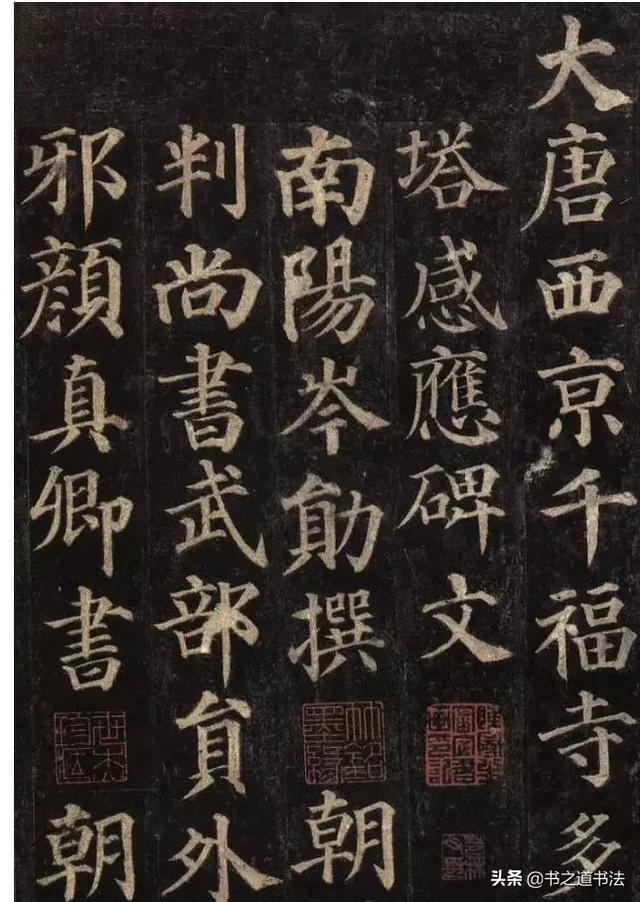 大唐西亰千福寺多
塔感應碑文
南陽岑勛撰 朝
判尚書武部貟外
邪顔真卿書 朝
头条 @书之道书法